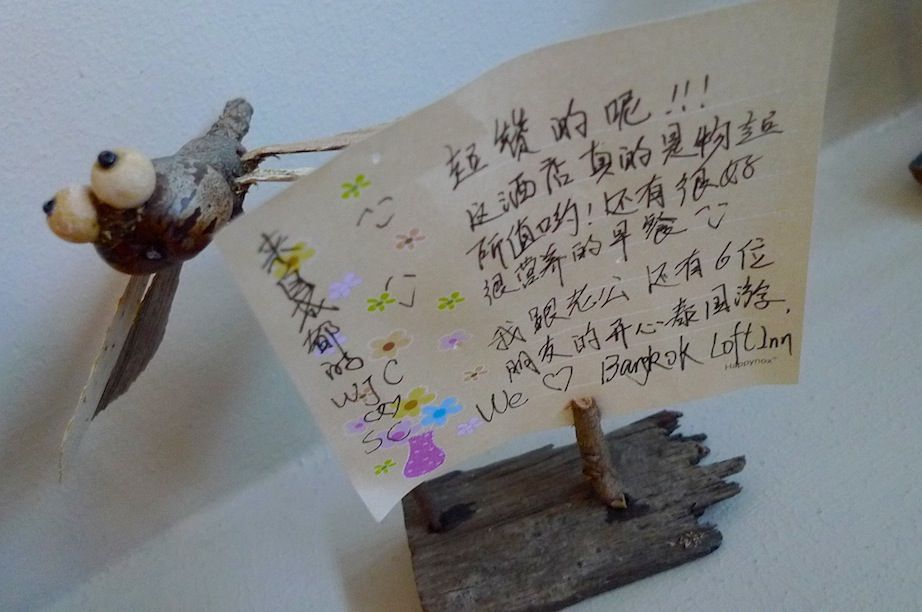 超赞的呢!!!
这酒店真的是物超
所值哟!还有很好
很营养的早餐
我跟老公还有6位
朋友的开心泰国游.
We ♡ Bangkok Loft Inn
Happynox
来自成都的
WJC
SC